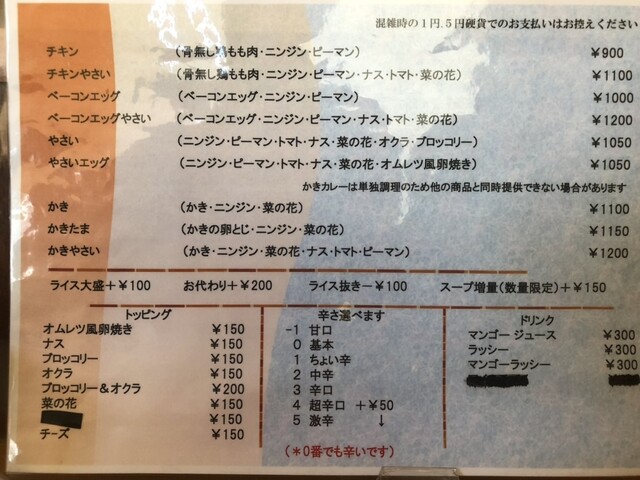 混雑時の１円.５円硬貨でのお支払いはお控えください
チキン （骨無し鶏もも肉・ニンジン・ピーマン） ￥900
チキンやさい （骨無し鶏もも肉・ニンジン・ピーマン・ナス・トマト・菜の花） ￥1100
ベーコンエッグ （ベーコンエッグ・ニンジン・ピーマン） ￥1000
ベーコンエッグやさい （ベーコンエッグ・ニンジン・ピーマン・ナス・トマト・菜の花） ￥1200
やさい （ニンジン・ピーマン・トマト・ナス・菜の花・オクラ・ブロッコリー） ￥1050
やさいエッグ （ニンジン・ピーマン・トマト・ナス・菜の花・オムレツ風卵焼き） ￥1050
かきカレーは単独調理のため他の商品と同時提供できない場合があります
かき （かき・ニンジン・菜の花） ￥1100
かきたま （かきの卵とじ・ニンジン・菜の花） ￥1150
かきやさい （かき・ニンジン・菜の花・ナス・トマト・ピーマン） ￥1200
ライス大盛＋￥100 お代わり＋￥200 ライス抜き－￥100 スープ増量（数量限定）＋￥150
トッピング
オムレツ風卵焼き ￥150
ナス ￥150
ブロッコリー ￥150
オクラ ￥150
ブロッコリー＆オクラ ￥200
菜の花 ￥150
￥150
チーズ ￥150
辛さ選べます
－1 甘口
0 基本
1 ちょい辛
2 中辛
3 辛口
4 超辛口 ＋￥50
5 激辛 ↓
（＊0番でも辛いです）
ドリンク
マンゴー ジュース ￥300
ラッシー ￥300
マンゴーラッシー ￥300